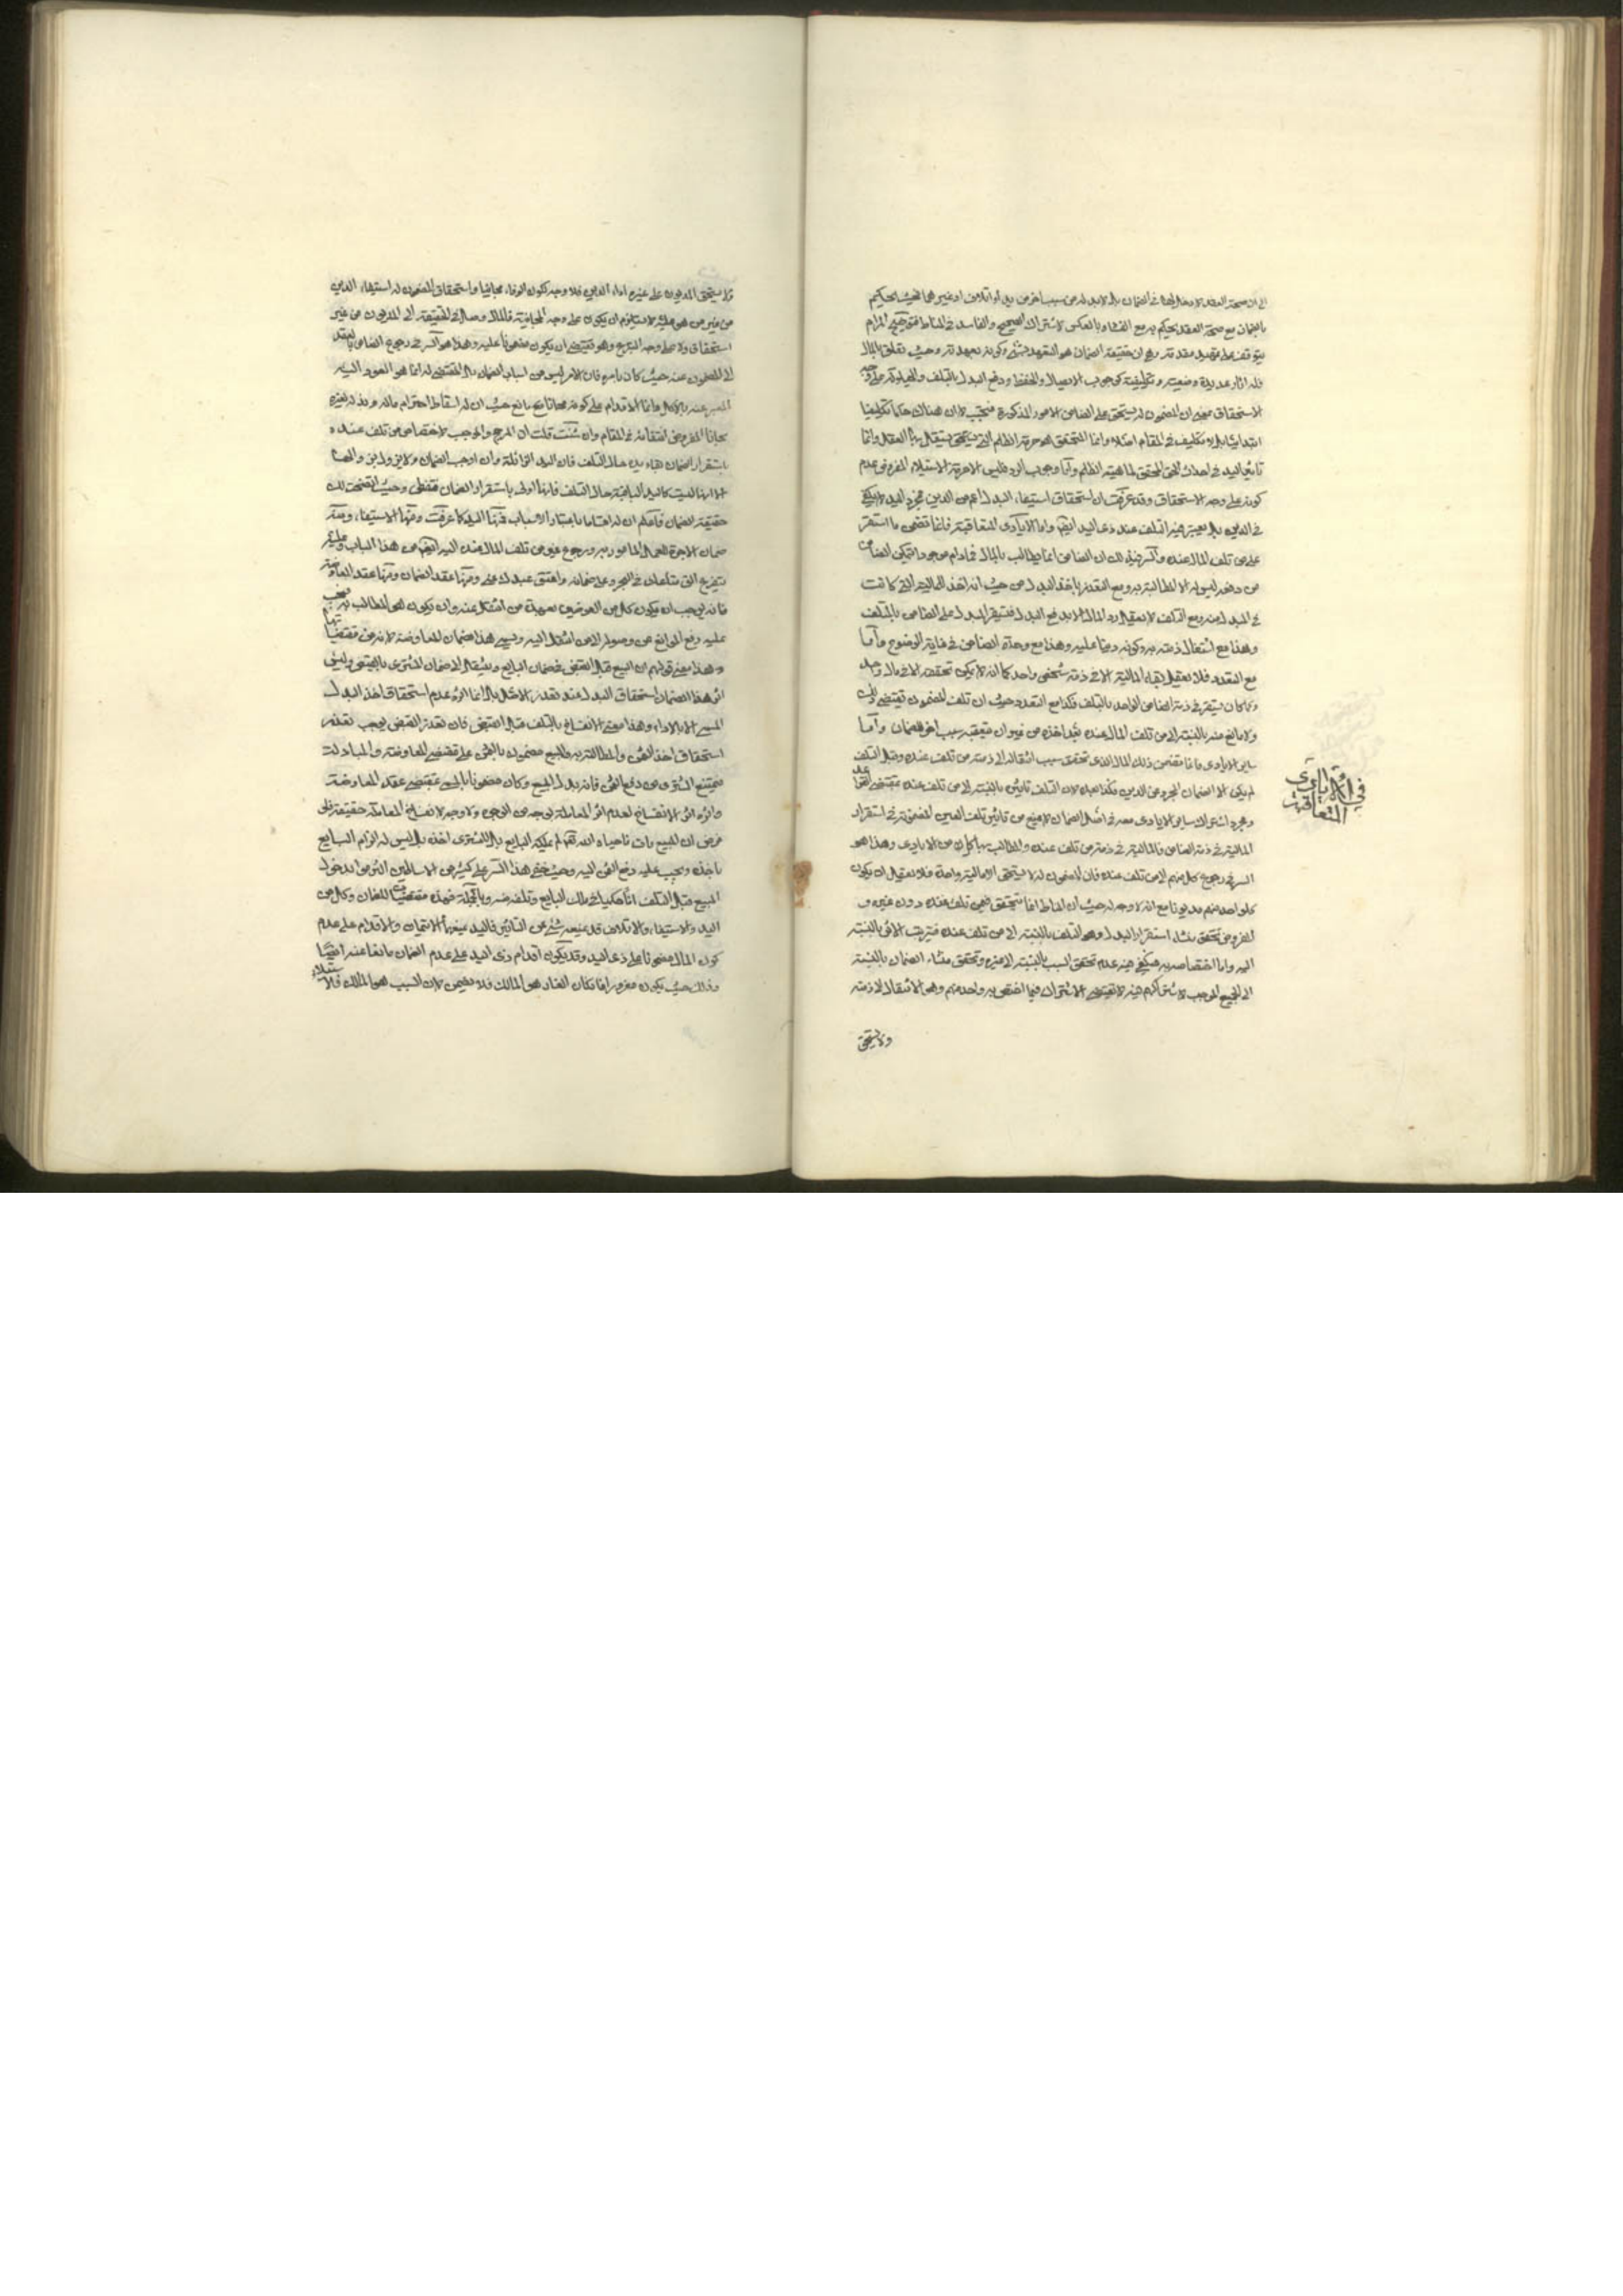 الى ان صحة العقد لا دخل لها في الضمان بل لا بد له من سبب اخر من يد او اتلاف او غيرهما فحيث يحكم
بالضمان مع صحة العقد يحكم به مع الفساد وبالعكس لاشتراك الصحيح والفاسد في المناط فتوضيح المرام
يتوقف على تمهيد مقدمة وهي ان حقيقة الضمان هو التعهد بشيء وكونه بعهدته وحيث تعلق بالمال
فله اثار عديدة وضعية وتكليفية كوجوب الايصال والحفظ ودفع البدل بالتلف والحيلولة على وجه
الاستحقاق بمعنى ان المضمون له يستحق على الضامن الامور المذكورة فتجب لا ان هناك حكما تكليفيا
ابتدائيا بل لا تكليف في المقام اصلا وانما المتحقق هو حرمة الظلم التي يستقل بها العقل وانما
تاثير اليد في احداث الحق المحقق لماهية الظلم واما وجوب الرد فليس الا حرمة الاستيلاء المفروض عدم
كونه على وجه الاستحقاق وقد عرفت ان استحقاق استيفاء البدل اعم من الدين فمجرد اليد لا يكفي
في الدين بل يعتبر فيه التلف عند ذي اليد ايضا واما الايادي المتعاقبة فانما تقتضي ما استقر
على من تلف المال عنده والسر في ذلك ان الضامن انما يطالب بالمال فما دام موجودا يتمكن الضامن
من دفعه ليس له الا المطالبة به ومع التعذر ياخذ البدل من حيث انه اخذ المالية التي كانت
في المبدل منه ومع التلف لا يعقل رد المال الا بدفع البدل فتستقر البدل على الضامن بالتلف
وهذا مع اشتغال ذمته به وكونه دينا عليه وهذا مع وحدة الضامن في غاية الوضوح واما
مع التعدد فلا يعقل بقاء المالية الا في ذمة شخص واحد كما انه لا يمكن تحققه الا في مال واحد
وكما كان يستقر في ذمة الضامن الواحد بالتلف فكذا مع التعدد حيث ان تلف المضمون يقتضي ذلك
ولا مانع منه بالنسبة الى من تلف المال عنده فيؤاخذ به من غير ان يتعقبه سبب اخر للضمان واما
ساير الايادي فانما تضمن ذلك المال الذي تحقق سبب انتقاله الى ذمة من تلف عنده وقبل التلف
لم يكن الا الضمان المجرد عن الدين فكذا بعده لان التلف تاثيره بالنسبة الى من تلف عنده بمقتضى القواعد
ومجرد اشتراك ساير الايادي معه في اصل الضمان لا يمنع من تاثير تلف العين المضمونة في استقرار
المالية في ذمة الضامن فالمالية في ذمة من تلف عنده والمطالب بها كل من الايادي وهذا هو
السر في رجوع كل منهم الى من تلف عنده فان المضمون له لا يستحق الا مالية واحدة فلا يعقل ان يكون
كل واحد منهم مديونا مع انه لا وجه له حيث ان المناط انما يتحقق فيمن تلف عنده دون غيره و
المفروض تحقق منشاء استقرار البدل وهو التلف بالنسبة الى من تلف عنده فترتب الاثر بالنسبة
اليه واما اختصاصه به فيكفي فيه عدم تحقق السبب بالنسبة الى غيره وتحقق منشاء الضمان بالنسبة
الى الجميع الموجب لاشتراكهم فيه لا يقتضي الاشتراك فيما اختص به واحد منهم وهو الانتقال الى ذمته
ولا يستحق
في الايادي
المتعاقبة
ولا يستحق المديون على غيره اداء الدين فلا وجه لكون الوفاء مجانيا واستحقاق المضمون له استيفاء الدين
من غير من هو عليه لا يستلزم ان يكون على وجه المجانية فالمال وصل في الحقيقة الى المديون من غير
استحقاق ولا على وجه التبرع وهو يقتضي ان يكون مضمونا عليه وهذا هو السر في رجوع الضامن بالعقد
الى المضمون عنه حيث كان بامره فان الامر ليس من اسباب الضمان بل المقتضي له انما هو العود اليه
المعبر عنه بالاكل وانما الاقدام على كونه مجانا مانع حيث ان له اسقاط احترام ماله وبذله لغيره
مجانا المفروض انتفائه في المقام وان شئت قلت ان المرجح والموجب لاختصاص من تلف عنده
باستقرار الضمان هنا يده حال التلف فان اليد الزائلة وان اوجب الضمان
الا انها ليست كاليد الباقية حال التلف فانها اولى باستقرار الضمان فتفطن وحيث اتضحت لك
حقيقة الضمان فاعلم ان له اقساما باعتبار الاسباب فمنها اليد كما عرفت ومنها الاستيفاء ومنه
ضمان الاجرة للعمل المامور به ورجوع غير من تلف المال عنده اليه ايضا من هذا الباب وعليه
يتفرع الق متاعك في البحر وعلي ضمانه واعتق عبدك عني ومنها عقد الضمان ومنها عقد المعاوضة
فانه يوجب ان يكون كل من العوضين بعهدة من انتقل عنه وان يكون هو المطالب به فيجب
عليه رفع الموانع عن وصوله الى من انتقل اليه ويسمى هذا ضمان المعاوضة لانه من مقتضياتها
وهذا معنى قولهم ان المبيع قبل القبض في ضمان البايع وينتقل الى ضمان المشتري بالقبض وليس
اثر هذا الضمان استحقاق البدل عند تعذر الاصل بل انما اثره عدم استحقاق اخذ البدل
المسمى الا بالاداء وهذا معنى الانفساخ بالتلف قبل القبض فان تعذر القبض يوجب تعذر
استحقاق اخذ الثمن والمطالبة به والمبيع مضمون بالثمن على مقتضى المعاوضة والمبادلة
فيمتنع المشتري من دفع الثمن فانه بدل المبيع وكان مضمونا بالمسمى بمقتضى عقد المعاوضة
واثره اثر الانفساخ لعدم اثر للمعاملة بوجه من الوجوه ولا وجه لانفساخ المعاملة حقيقة فلو
فرض ان المبيع مات فاحياه الله تعالى لم يملكه البايع بل للمشتري اخذه بل ليس له الزام البايع
باخذه ويجب عليه دفع الثمن اليه وحيث خفي هذا السر على كثير من الاساطين التزموا بدخول
المبيع قبل التلف انا ما حكميا في ملك البايع وتلفه منه وبالجملة فهذه مقتضيات للضمان وكل من
اليد والاستيفاء والاتلاف قد يمنعه شيء عن التاثير فاليد يمنعها الائتمان والاقدام على عدم
كون المال مضمونا على ذي اليد وقد يكون اقدام ذي اليد على عدم الضمان مانعا عنه ايضا
وذلك حيث يكون مغرورا فان كان الغار هو المالك فلا يضمن لان السبب هو المالك فلا استيلاء